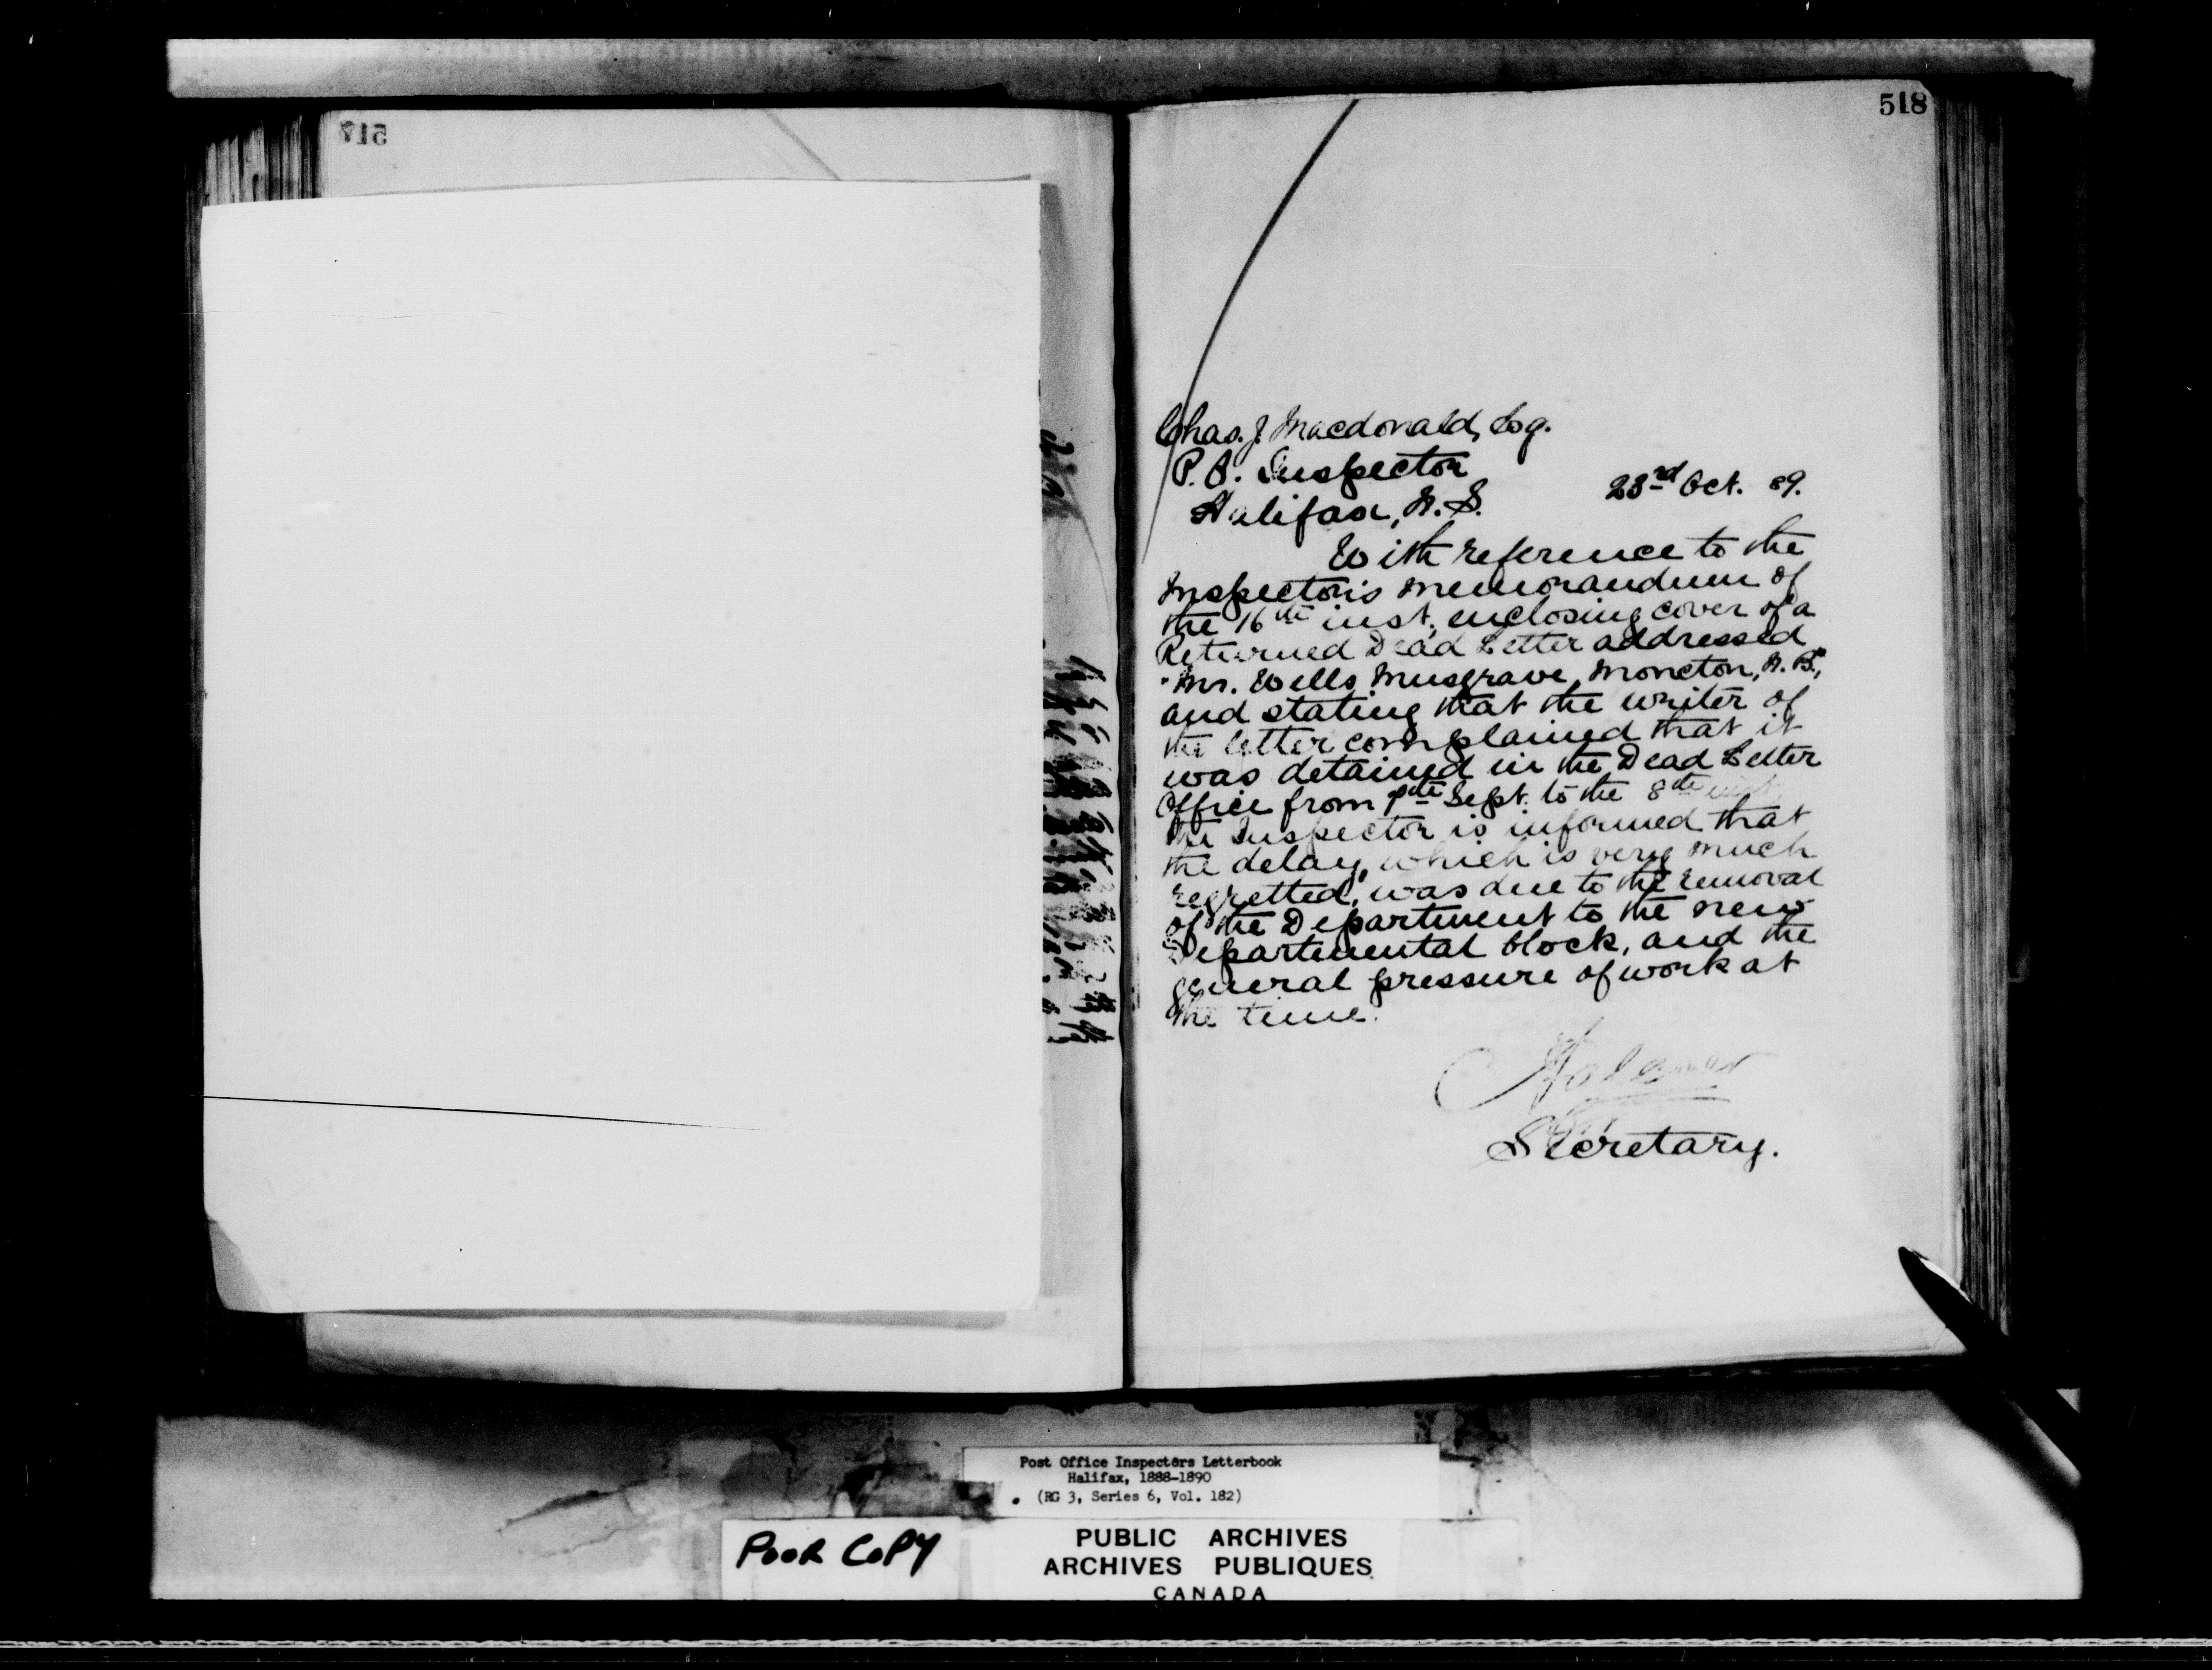 517
518
Chas. J. Macdonald, Esq.
P. O. Inspector
Halifax, N. S.
23rd Oct. 89.
With reference to the
Inspector's memorandum of
the 16th inst., enclosing cover of a
Returned Dead Letter addressed
"Mr. Wells Musgrave, Moncton, N. B.",
and stating that the writer of
the letter complained that it
was detained in the Dead Letter
Office from Sept. to the 8th inst.
the Inspector is informed that
the delay, which is very much
regretted, was due to the removal
of the Department to the new
Departmental block, and the
general pressure of work at
the time.
Secretary.
Post Office Inspectors Letterbook
Halifax, 1888-1890
(RG 3, Series 6, Vol. 182)
POOR COPY
PUBLIC ARCHIVES
ARCHIVES PUBLIQUES
CANADA